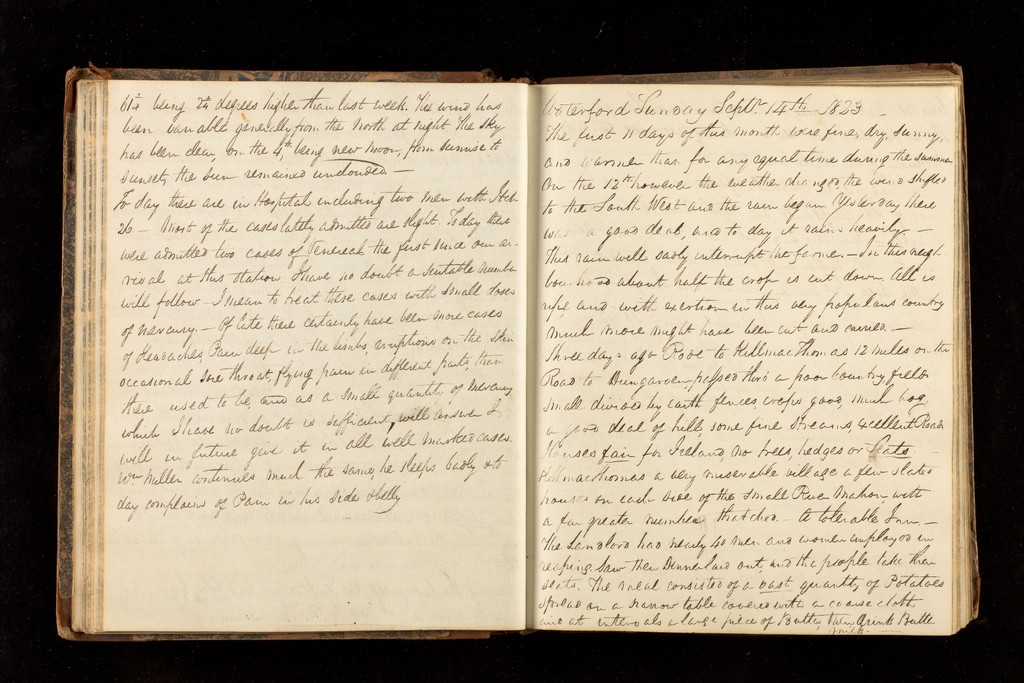 61¼ being 2¼ degrees higher than last week. The wind has
been variable generally from the North at night The sky
has been clear, on the 4th, being new moon, from sunrise to
sunset, the sun remained unclouded —
To day there are in Hospital including two men with Itch
26 — Most of the cases lately admitted are slight. To day there
were admitted two cases of Venereal the first since our ar-
rival at this station. I have no doubt a suitable number
will follow — I mean to treat these cases with small doses
of mercury. — Of late there certainly have been more cases
of Headaches, Pain deep in the limbs, eruptions on the skin
occasional Sore throat, flying pain in different parts, than
there used to be, and as a small quantity of Mercury
which I have no doubt is sufficient, will answer I
will in future give it in all well marked cases.
Wm Miller continues much the same, he sleeps badly & to
day complains of Pain in his side & belly
Waterford Sunday Septr. 14th 1823 —
The first 11 days of this month were fine, dry, sunny,
and warmer than for any equal time during the summer
On the 12th however the weather changed, the wind shifted
to the South West and the rain began Yesterday there
was a good deal, and to day it rains heavily. —
This rain will sadly interrupt the farmer. — In this neigh
bourhood about half the crop is cut down All is
ripe and with exertion in this very populous country
much more might have been cut and carried. —
Three days ago Rode to Killmacthomas 12 miles on the
Road to Dungarven, passed thro' a poor Country, fields
small divided by earth fences, crops good, much bog,
a good deal of hill, some fine streams, excellent Roads
Houses fair for Ireland, no trees, hedges or Seats
Killmacthomas a very miserable village a few slated
houses on each side of the small River Mahon, with
a far greater number thatched. — A tolerable Inn. —
The Landlord had nearly 40 men and women employed in
reaping. Saw their Dinner laid out, and the people take their
seats. The meal consisted of a vast quantity of Potatoes
spread on a narrow table covered with a coarse cloth
and at intervals a large piece of Butter, their drink Butter
milk. —